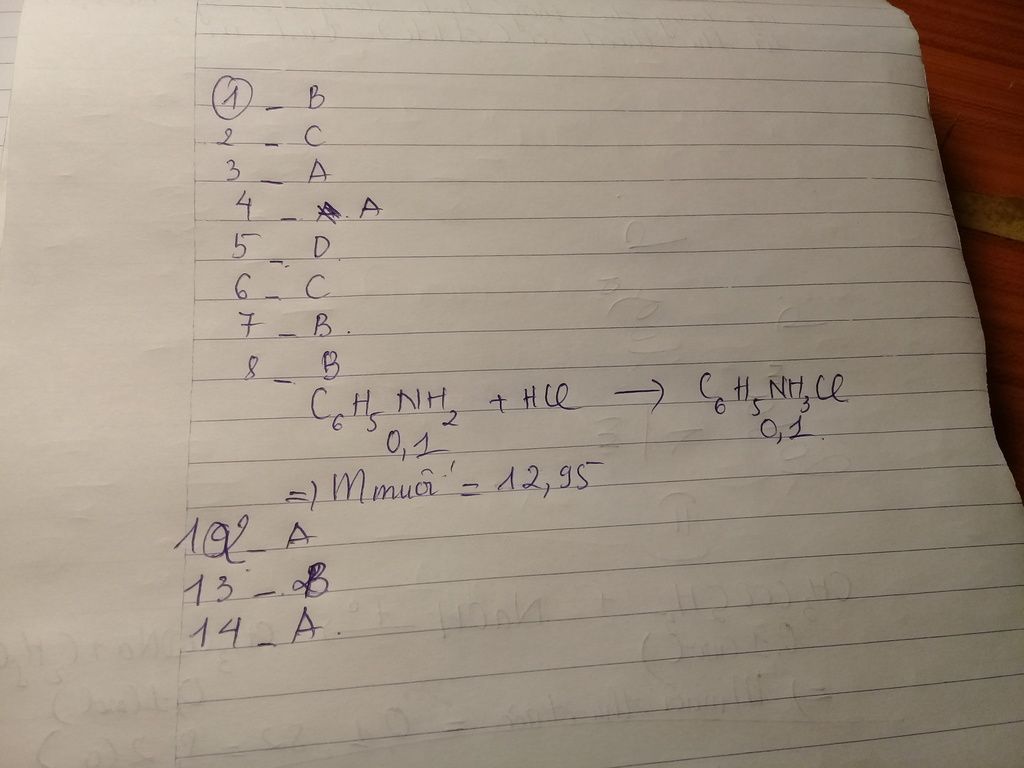 1 - B
2 - C
3 - A
4 - A
5 - D.
6 - C
7 - B.
8 - B
C6H5NH2 + HCl → C6H5NH3Cl
0,1 0,1.
=) m muối = 12,95
12 - A
13 - B
14 - A.